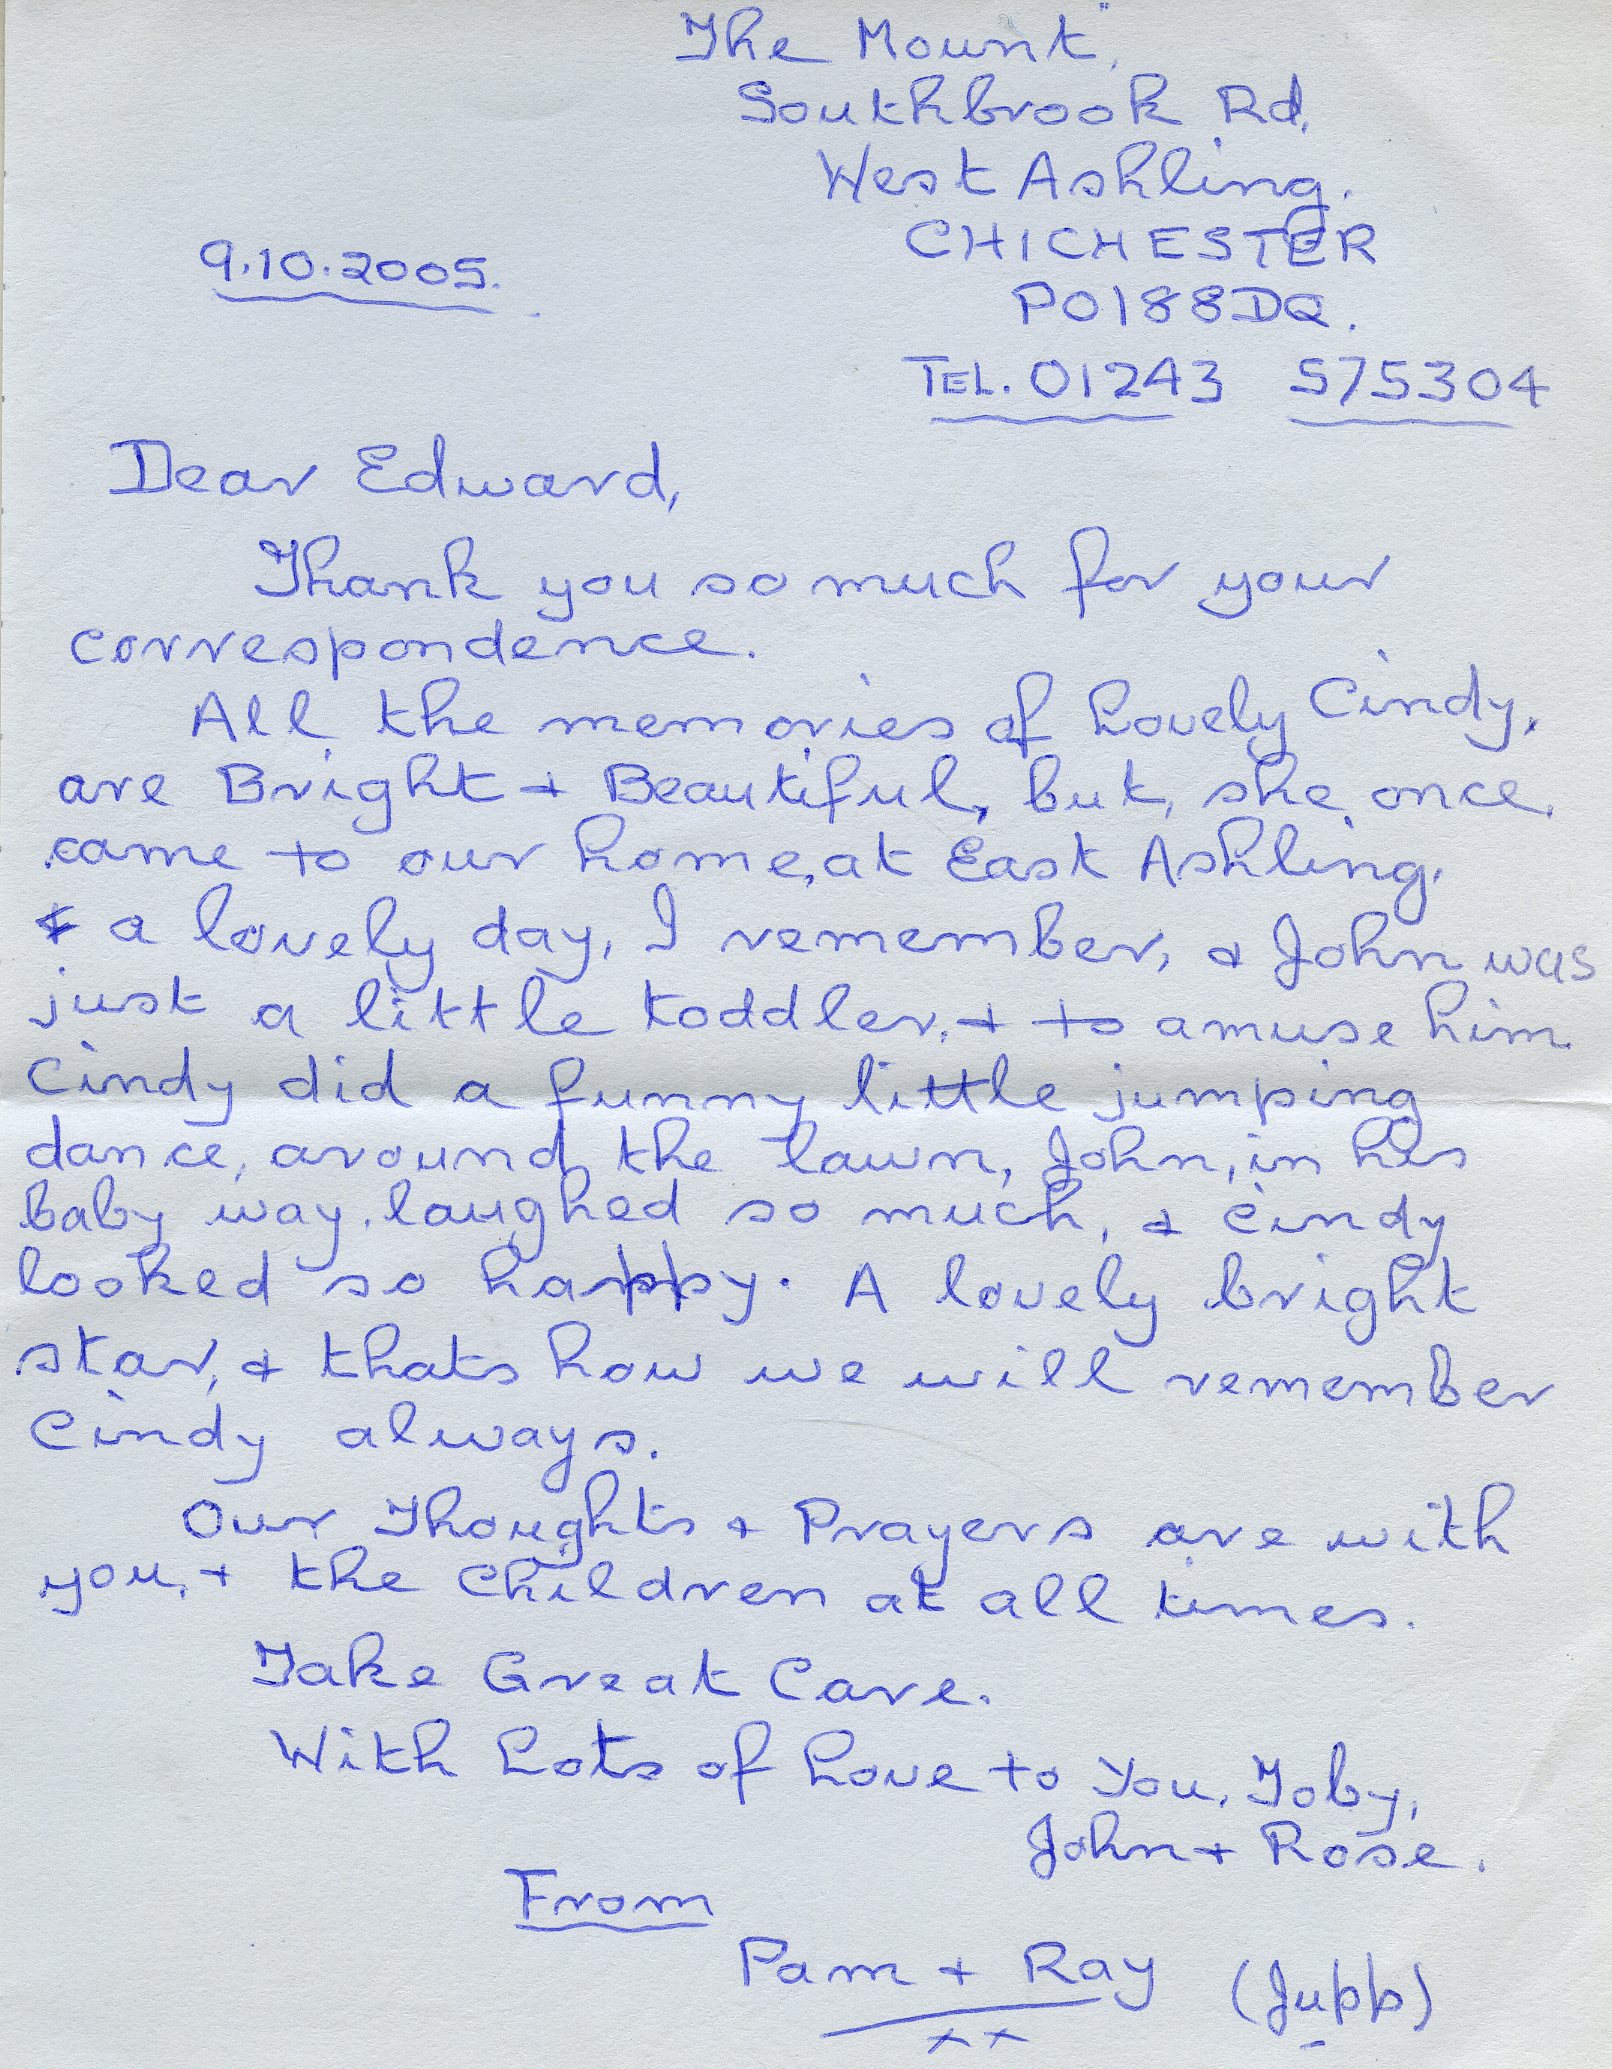 The Mount",
Southbrook Rd,
West Ashling.
CHICHESTER
9.10.2005.
PO188DQ.
TEL. 01243 575304
Dear Edward,
Thank you so much for your
correspondence.
All the memories of Lovely Cindy,
are Bright + Beautiful, but, she once,
came to our home, at East Ashling.
& a lovely day, I remember, & John was
just a little toddler, + to amuse him
Cindy did a funny little jumping
dance, around the lawn, John, in his
baby way, laughed so much, & Cindy
looked so happy. A lovely bright
star, & thats how we will remember
Cindy always.
Our Thoughts & Prayers are with
you, + the children at all times.
Take Great Care.
With Lots of Love to You, Toby,
John + Rose.
From
Pam + Ray (Jupp)
xx